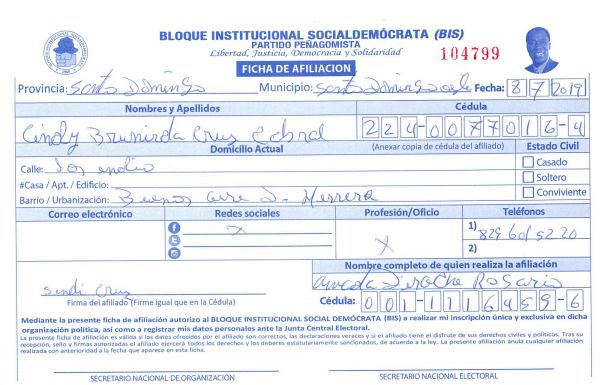 BLOQUE INSTITUCIONAL SOCIALDEMÓCRATA (BIS)
PARTIDO PEÑAGOMISTA
Libertad, Justicia, Democracia y Solidaridad
104799
FICHA DE AFILIACION
Provincia: Santo Domingo Municipio: Santo Domingo Fecha: 8/7/2019
Nombres y Apellidos Cédula
Cindy Cruz Cabral 224-0077016-4
Domicilio Actual (Anexar copia de cédula del afiliado) Estado Civil
Calle: Los indio Casado
#Casa / Apt. / Edificio: Soltero
Barrio / Urbanización: Buenos Herrera Conviviente
Correo electrónico Redes sociales Profesión/Oficio Teléfonos
x x 1) 829 601 5220
2)
Nombre completo de quien realiza la afiliación
sindi Cruz Rosario
Firma del afiliado (Firme igual que en la Cédula) Cédula: 001-1116459-6
Mediante la presente ficha de afiliación autorizo al BLOQUE INSTITUCIONAL SOCIAL DEMÓCRATA (BIS) a realizar mi inscripción única y exclusiva en dicha
organización política, así como a registrar mis datos personales ante la Junta Central Electoral.
La presente ficha de afiliación es válida si los datos ofrecidos por el afiliado son correctos, las declaraciones veraces y si el afiliado tiene el disfrute de sus derechos civiles y políticos. Tras su
recepción, sello y firmas autorizadas el afiliado ejercerá todos los derechos y los deberes estatutariamente sancionados, de acuerdo a la ley. La presente afiliación anula cualquier afiliación
realizada con anterioridad a la fecha que aparece en esta ficha.
SECRETARIO NACIONAL DE ORGANIZACIÓN SECRETARIO NACIONAL ELECTORAL